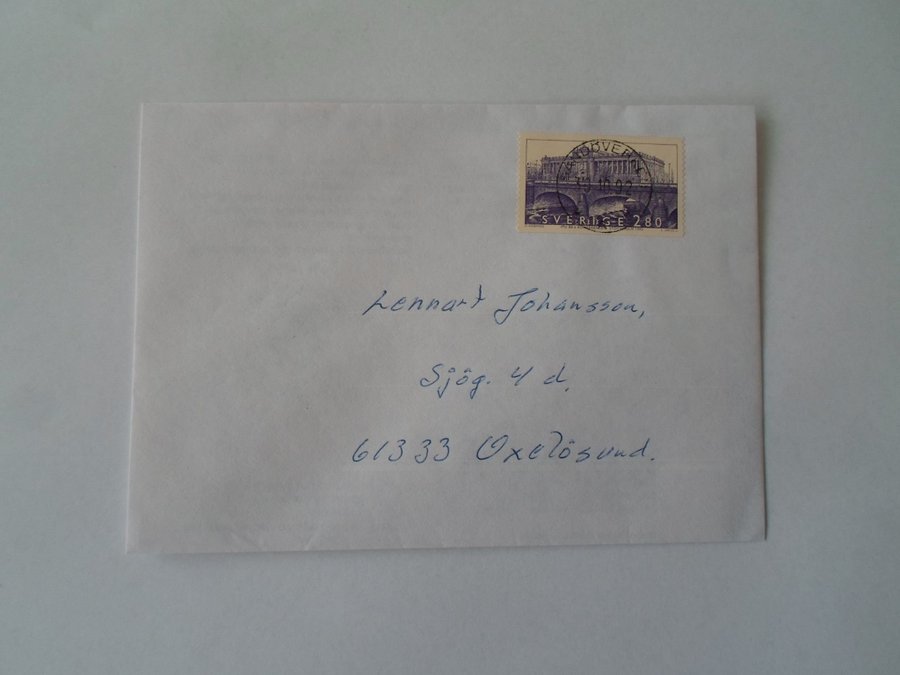 SVERIGE 280
Lennart Johansson,
Sjög. 4 d.
61333 Oxelösund.